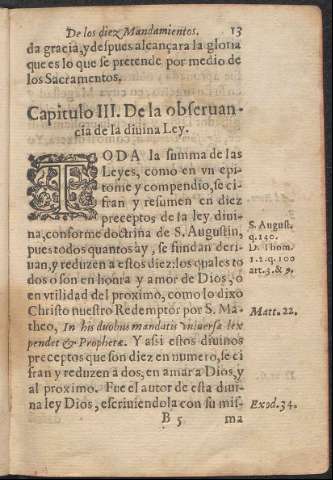 De los diez Mandamientos. 13
da gracia, y despues alcançara la gloria
que es lo que se pretende por medio de
los Sacramentos.
Capitulo III. De la obseruan-
cia de la diuina Ley.
TODA la summa de las
Leyes, como en vn epi-
tome y compendio, se ci-
fran y resumen en diez
preceptos de la ley diui-
na, conforme doctrina de S. Augustin,
pues todos quantos ay, se fundan deri-
uan, y reduzen a estos diez: los quales to
dos o son en honra y amor de Dios, o
en vtilidad del proximo, como lo dixo
Christo nuestro Redemptor por S. Ma-
theo, In his duobus mandatis vniuersa lex
pendet & Prophetæ. Y assi estos diuinos
preceptos que son diez en numero, se ci
fran y reduzen a dos, en amar a Dios, y
al proximo. Fue el autor de esta diui-
na ley Dios, escriuiendola con su mis-
B 5 ma
S. August.
q. 140.
D. Thom.
1. 2. q. 100
art. 3. & 9.
Matt. 22.
Exod. 34.